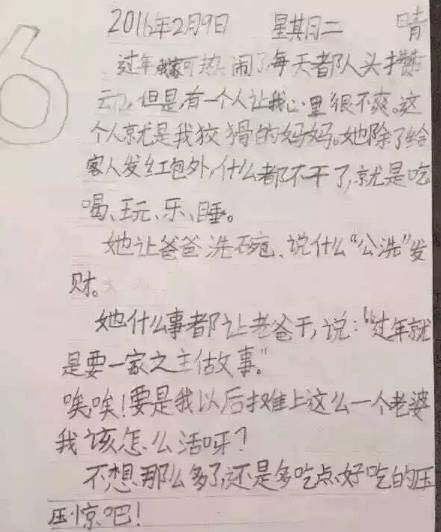 6
2016年2月9日 星期日二 晴
过年我家可热闹了,每天都队头攒
动,但是有一个人让我心里很不爽。这
个人就是我狡猾的妈妈。她除了给
客人发红包外,什么都不干了,就是吃
喝、玩、乐、睡。
她让爸爸洗碗、说什么“公洗”发
财。
她什么事都让老爸干,说:“过年就
是要一家之主做事。”
唉,唉!要是我以后摊上这么一个老婆
我该怎么活呀?
不想那么多了,还是多吃点好吃的压
压惊吧!